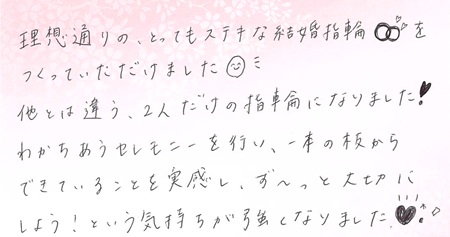 理想通りの、とってもステキな結婚指輪を
つくっていただけました
他とは違う、2人だけの指輪になりました!
わかちあうセレモニーを行い、一本の板から
できていることを実感し、ず〜っと大切に
しよう!という気持ちが強くなりました!